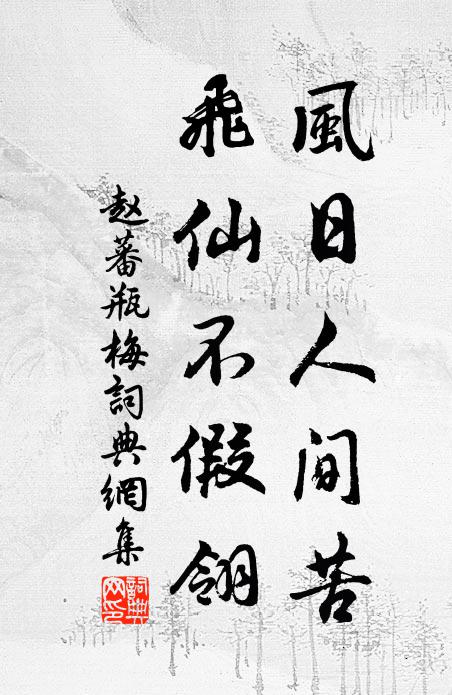 風日人間苦
飛仙不假翎
赵蕃瓶梅詞典網集
詞典網印